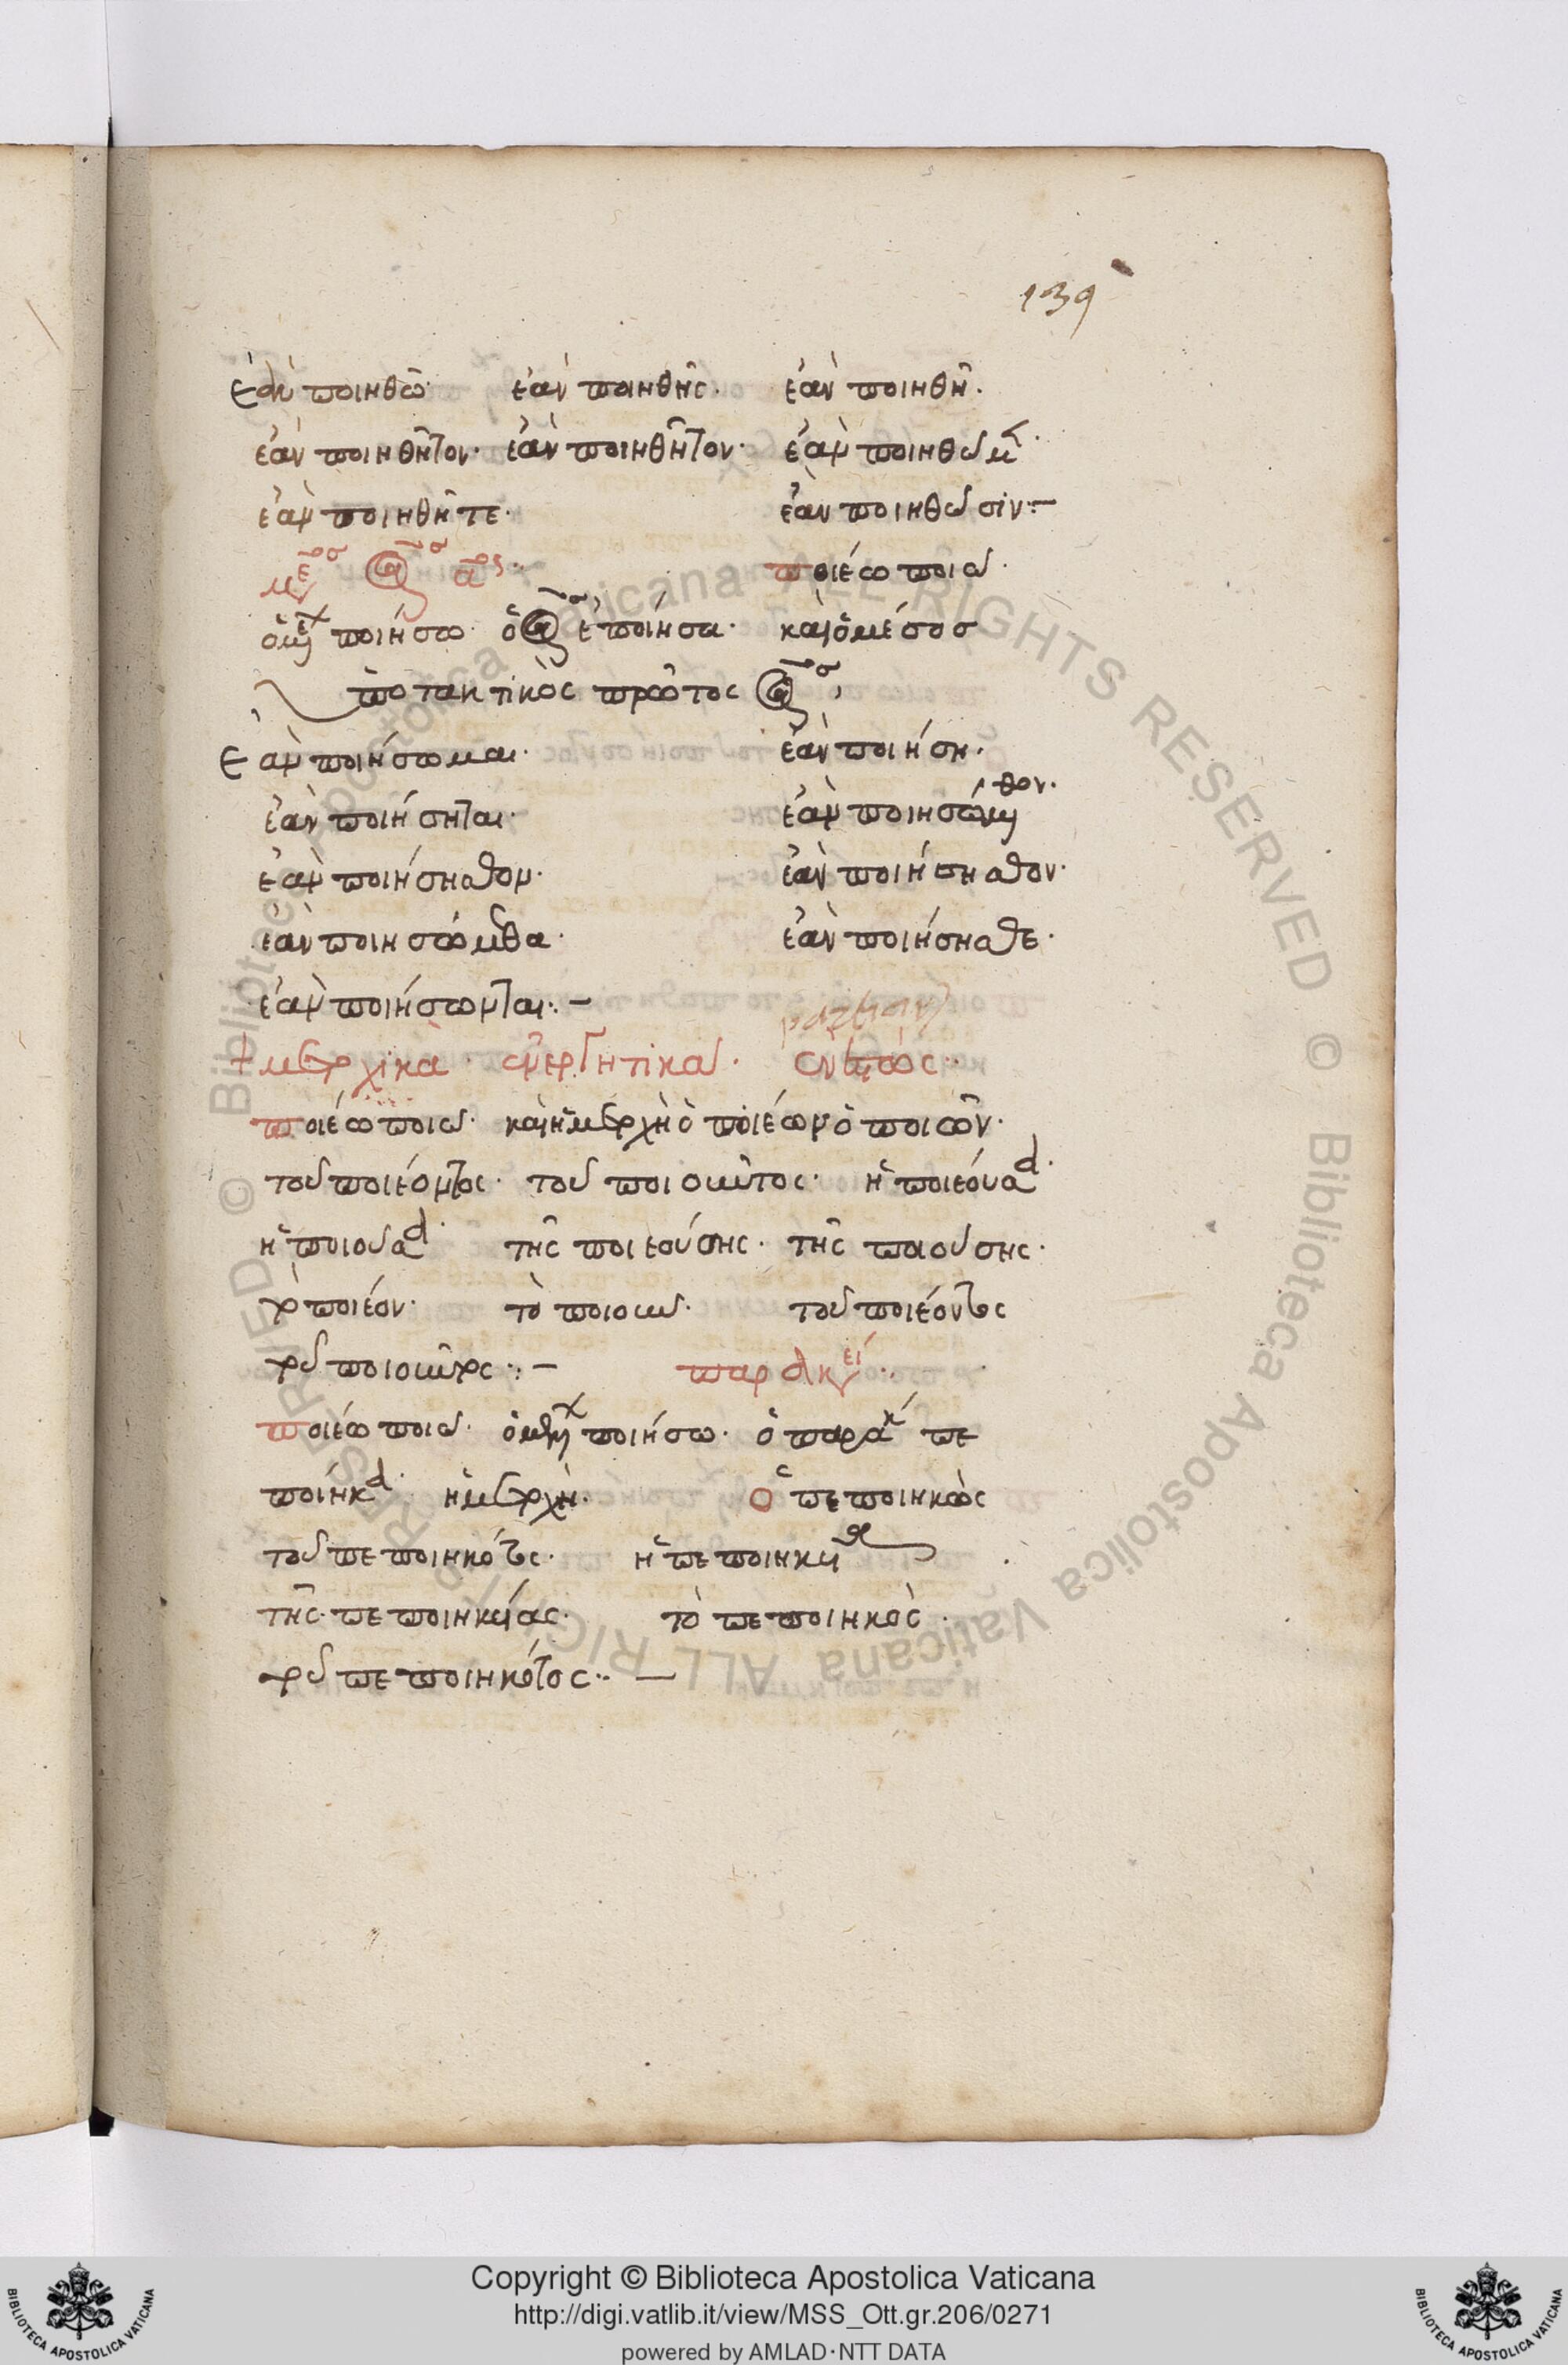 139
ἐὰν ποιηθῶ· ἐὰν ποιηθῆς· ἐὰν ποιηθῆ·
ἐὰν ποιηθῆτον· ἐὰν ποιηθῆτον· ἐὰν ποιηθῶμ
ἐὰν ποιηθῆτε· ἐὰν ποιηθῶσιν:–
ποιέω ποιῶ·
ποιήσω ὁ ἐποίησα· καὶ ὁ μέσοσ
ὑποτακτικὸς πρῶτος
Ἐὰν ποιήσωμαι· ἐὰν ποιήση·
ἐὰν ποιήσηται· ἐὰν ποιησώμεθον·
ἐὰν ποιήσησθον· ἐὰν ποιήσησθον·
ἐὰν ποιησώμεθα· ἐὰν ποιήσησθε·
ἐὰν ποιήσωνται:–
μετοχικὰ ἐνεργητικά· ἐνεστώς··
ποιέω ποιῶ· καὶ ἡ μετοχὴ ὁ ποιέων ὁ ποιῶν·
τοῦ ποιέοντος· τοῦ ποιοῦντος· ἡ ποιέουσα·
ἡ ποιοῦσα· τῆς ποιεούσης· τῆς ποιούσης·
τὸ ποιέον· τὸ ποιοῦν· τοῦ ποιέοντος
τοῦ ποιοῦντος:– παρακεί··
ποιέω ποιῶ· ὁ μέλλ ποιήσω· ὁ παρακ πε
ποίηκα· ἡ μετοχὴ· ὁ πεποιηκὼς
τοῦ πεποιηκότος· ἡ πεποιηκυῖα
τῆς πεποιηκυίας· τὸ πεποιηκὸς·
τοῦ πεποιηκότος·· —
© Biblioteca Apostolica Vaticana ALL RIGHTS RESERVED © Biblioteca Apostolica Vaticana ALL RIGHTS RESERVED
Copyright © Biblioteca Apostolica Vaticana
http://digi.vatlib.it/view/MSS_Ott.gr.206/0271
powered by AMLAD·NTT DATA
BIBLIOTECA APOSTOLICA VATICANA
BIBLIOTECA APOSTOLICA VATICANA